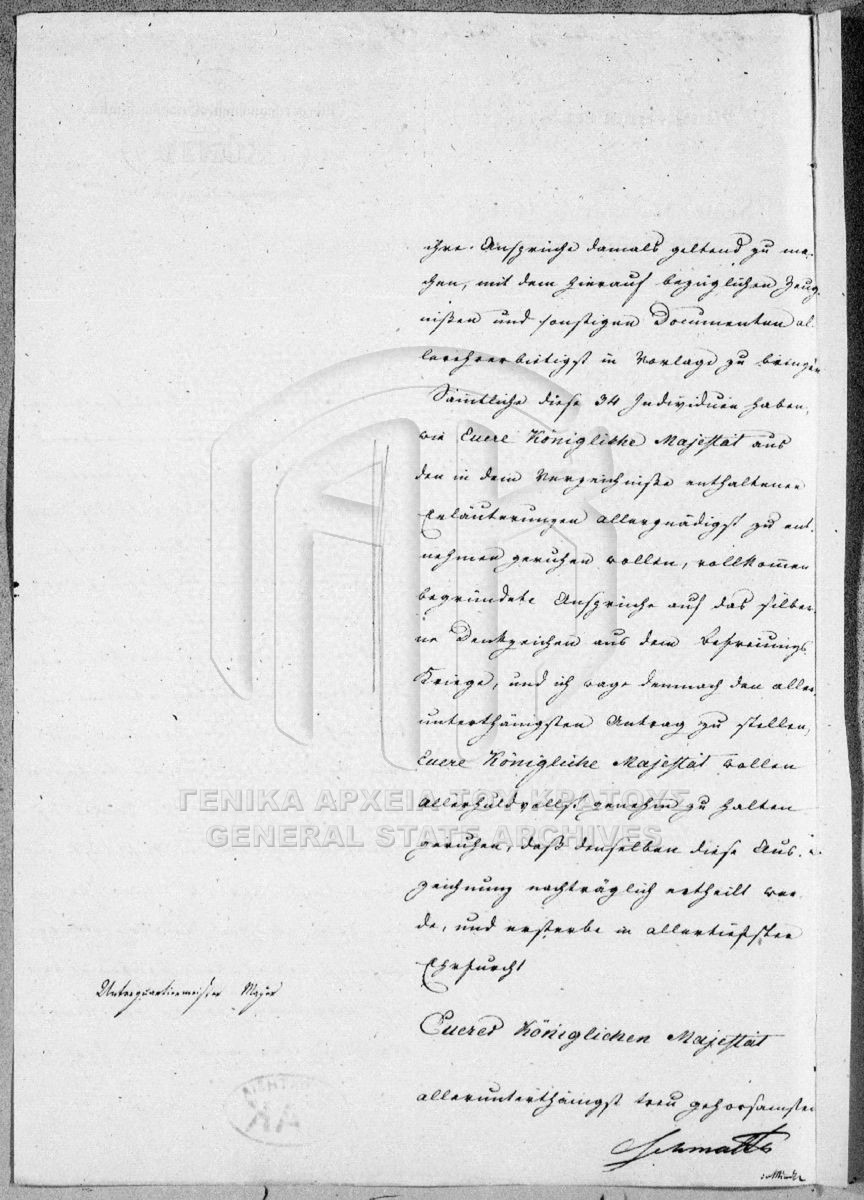 ihre Ansprüche damals geltend zu ma-
chen, mit den hierauf bezüglichen Zeug-
nißen und sonstigen Documenten al-
lerehrerbietigst in Vorlage zu bringen
Sämtliche diese 34 Individuen haben,
wie Euere Königliche Majestät aus
den in dem Verzeichniße enthaltenen
Erläuterungen allergnädigst zu ent-
nehmen geruhen wollen, vollkommen
begründete Ansprüche auf das silber-
ne Denkzeichen aus dem Befreiungs
Kriege, und ich wage demnach den aller-
unterthänigsten Antrag zu stellen,
Euere Königliche Majestät wollen
allerhuldvollst genehm zu halten
geruhen, daß denselben diese Aus-
zeichnung nachträglich ertheilt wer-
de, und ersterbe in allertiefster
Ehrfurcht
Unterquartiermeister Mayer
Euerer Königlichen Majestät
allerunterthänigst treu gehorsamster
Schmaltz
ΓΕΝΙΚΑ ΑΡΧΕΙΑ ΤΟΥ ΚΡΑΤΟΥΣ
GENERAL STATE ARCHIVES